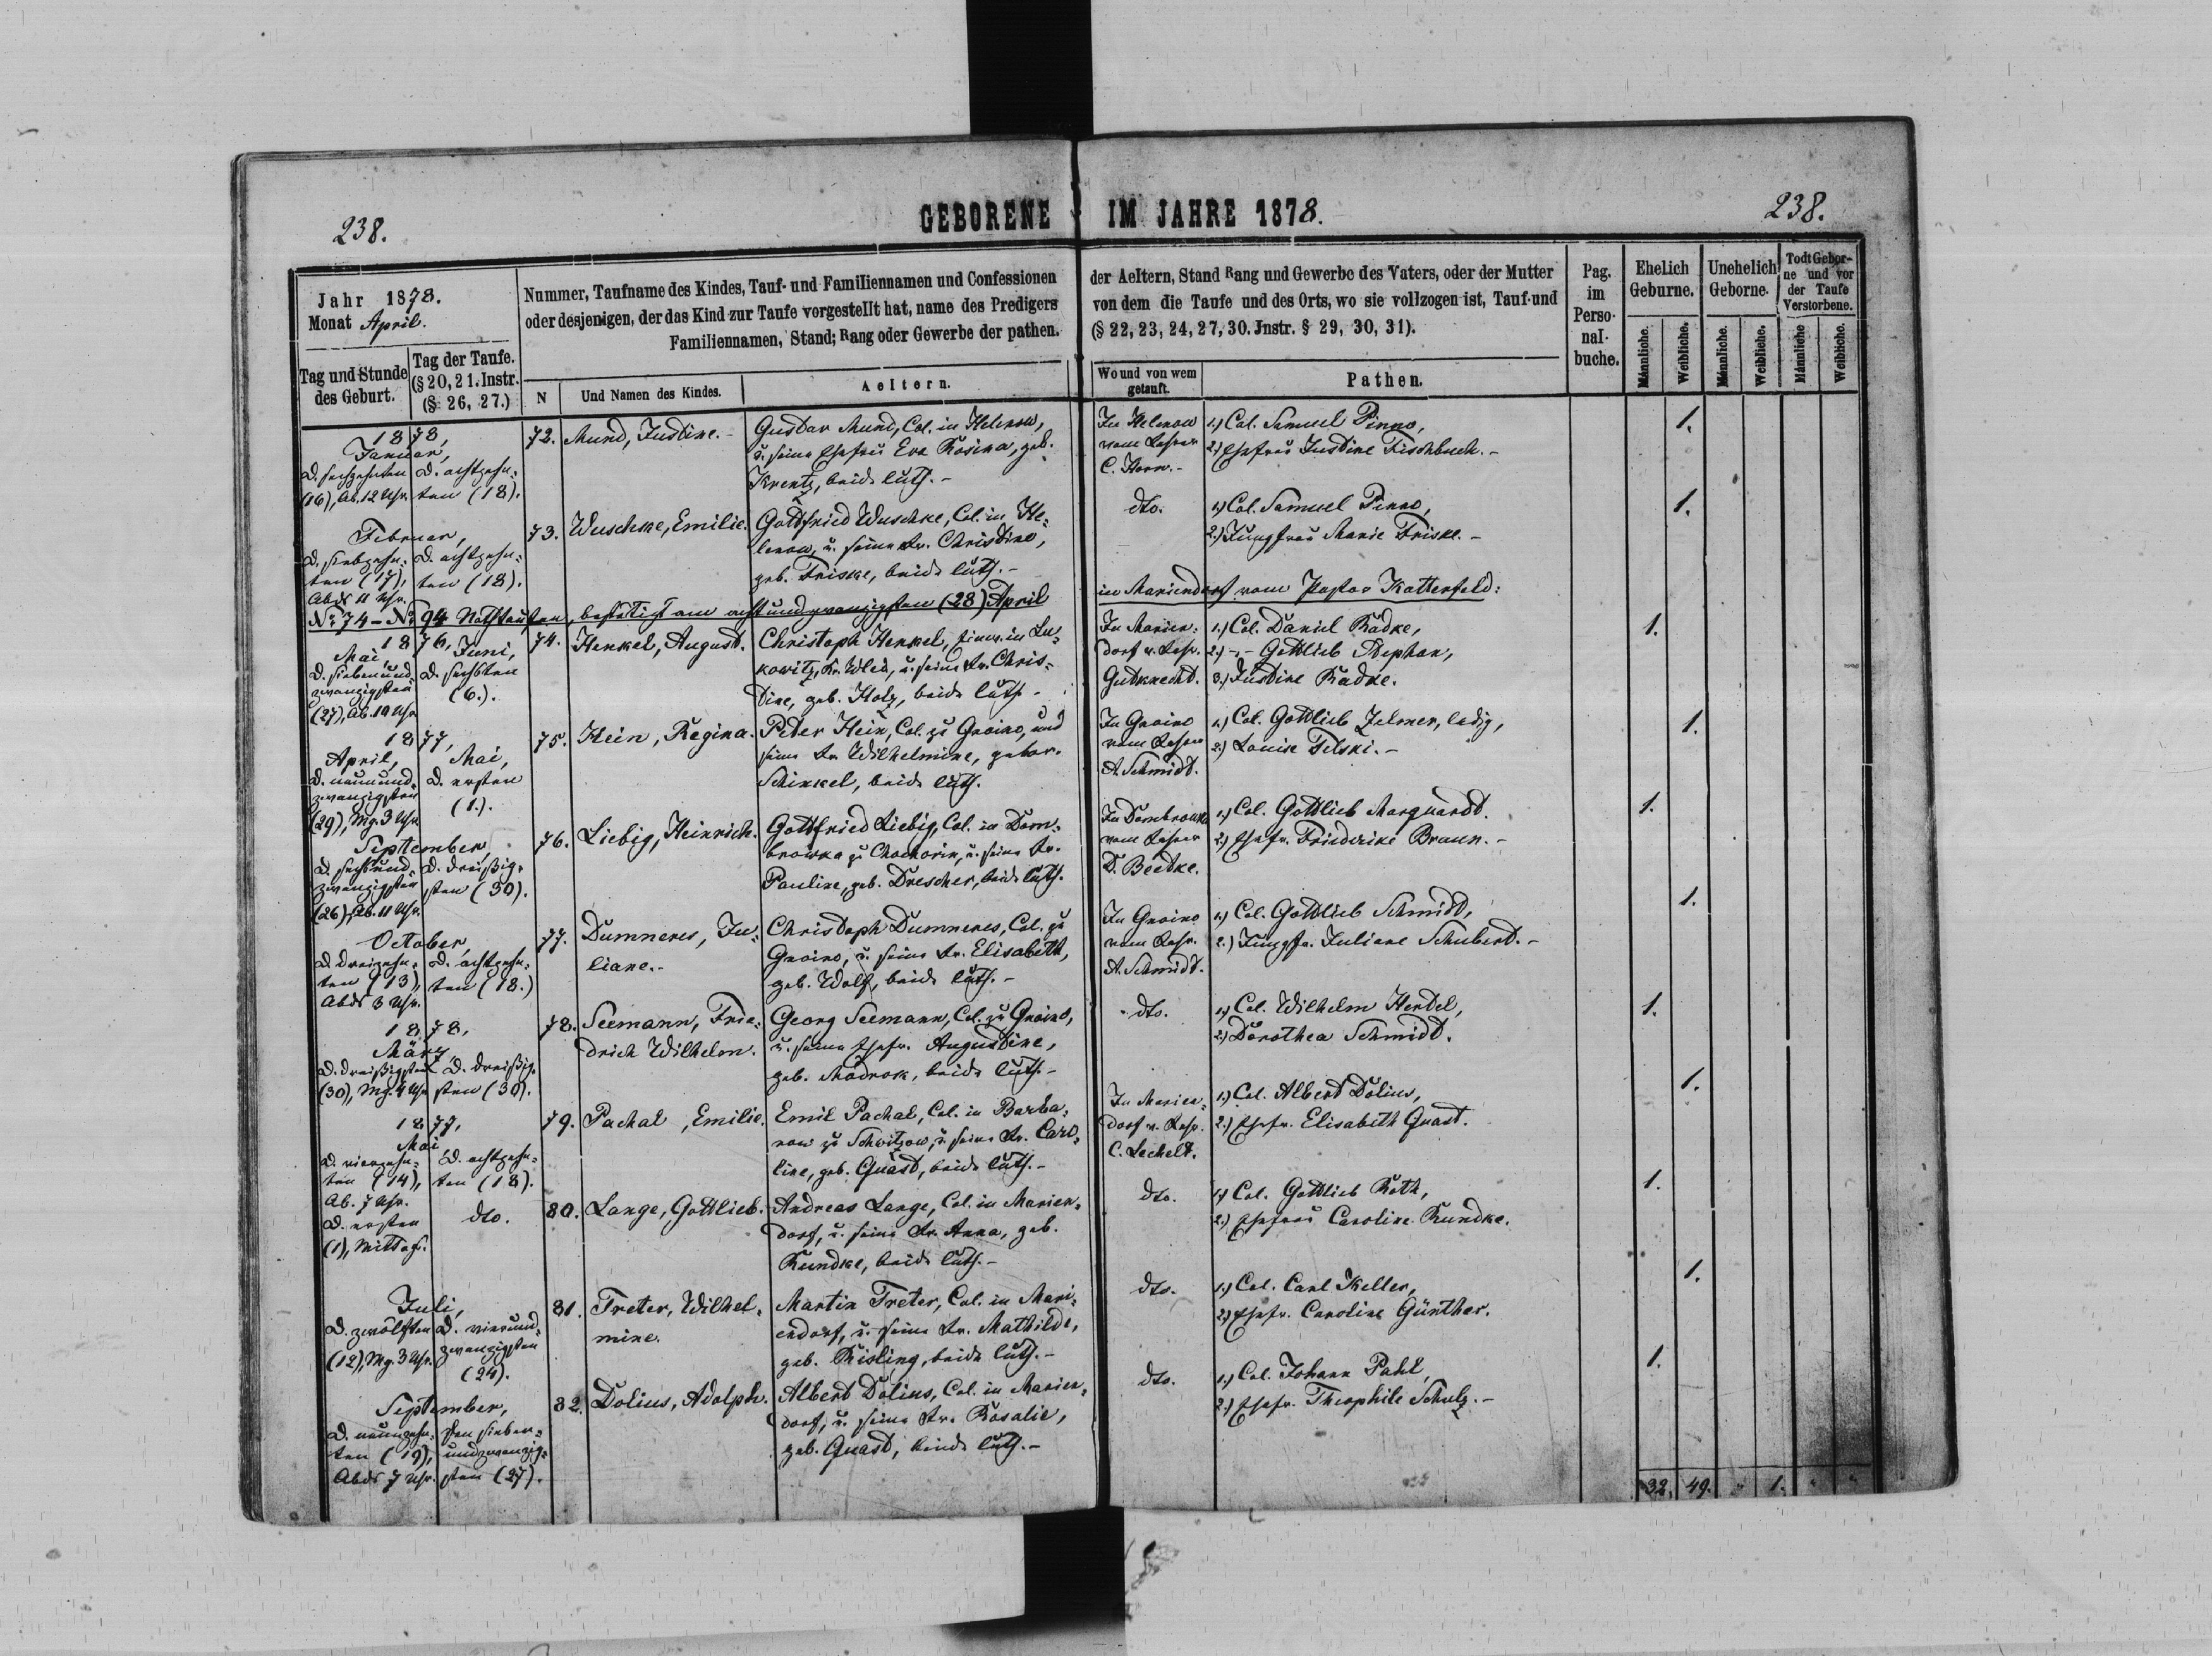 238.
GEBORENE IM JAHRE 1878.
238.
Jahr 1878.
Monat April.
Tag und Stunde
des Geburt.
Tag der Taufe.
(§ 20, 21. Instr.
(§ 26, 27.)
Nummer, Taufname des Kindes, Tauf- und Familiennamen und Confessionen
oder desjenigen, der das Kind zur Taufe vorgestellt hat, name des Predigers
Familiennamen, Stand; Rang oder Gewerbe der pathen.
N
Und Namen des Kindes.
Aeltern.
der Aeltern, Stand Rang und Gewerbe des Vaters, oder der Mutter
von dem die Taufe und des Orts, wo sie vollzogen ist, Tauf-und
(§ 22, 23, 24, 27, 30. Jnstr. § 29, 30, 31).
Wo und von wem
getauft.
Pathen.
Pag.
im
Perso-
nal-
buche.
Ehelich
Geburne.
Unehelich
Geborne.
Todt Gebor-
ne und vor
der Taufe
Verstorbene.
Männliche.
Weibliche.
Männliche.
Weibliche.
Männliche
Weibliche.
1878,
Januar,
D. sechzehnten
(16), Ab. 12 Uhr.
D. achtzehn-
ten (18).
72.
Mund, Justine.-
Gustav Mund, Col. in Helenow,
u. seine Ehefrau Eva Rosina, geb.
Krentz, beide luth.-
In Helenow
vom Lehrer
C. Horn.-
1.) Col. Samuel Pinno,
2.) Ehefrau Justine Fischbuch.-
1.
Februar,
D. siebzehn-
ten (17),
Abds 11 Uhr.
D. achtzehn-
ten (18).
73.
Wuschke, Emilie.
Gottfried Wuschke, Col. in He-
lenow, u. seine Fr. Christine,
geb. Friske, beide luth.-
dto.
1.) Col. Samuel Pinno,
2.) Jungfrau Marie Friske.-
1.
No 74 - No 94 Nothtaufen, bestätigt am acht und zwanzigsten (28) April
in Mariendorf vom Pastor Katterfeld:
1876,
Mai,
D. siebenund-
zwanzigsten
(27), Ab. 10 Uhr
Juni,
D. sechsten
(6.).
74.
Henkel, August.
Christoph Henkel, in Lu-
kowitz, Kr. u. seine Fr. Chris-
tine, geb. Holz, beide luth.-
In Marien-
dorf v. Lehr.
Gutknecht.
1.) Col. Daniel Radke,
2.) -,- Gottlieb Stephan,
3.) Justine Radke.
1.
1877,
April,
D. neunund-
zwanzigsten
(29), Mg. 3 Uhr
Mai,
D. ersten
(1.).
75.
Hein, Regina.
Peter Hein, Col. zu Gnoino, und
seine Fr. Wilhelmine, gebor.
Schinkel, beide luth.
In Gnoino
vom Lehrer
A. Schmidt.
1.) Col. Gottlieb Zelmer, ledig,
2.) Louise Telski.-
1.
September,
D. sechsund-
zwanzigsten
(26), Ab. 11 Uhr.
D. dreißig-
sten (30).
76.
Liebig, Heinrich.
Gottfried Liebig, Col. in Dom-
browka zu Chochorin, u. seine Fr.
Pauline, geb. Drescher, beide luth.
In Dombrowka
vom Lehrer
D. Beetke.
1.) Col. Gottlieb Marquardt.
2.) Ehefr. Friderike Braun.-
1.
October,
D. dreizehn-
ten (13),
Abds 3 Uhr.
D. achtzehn-
ten (18.)
77.
Dumneres, Ju-
liane.-
Christoph Dumneres, Col. zu
Gnoino, u. seine Fr. Elisabeth,
geb. Wolf, beide luth.-
In Gnoino
vom Lehr.
A. Schmidt.
1.) Col. Gottlieb Schmidt,
2.) Jungfr. Juliane Schubert.-
1.
1878,
März
D. dreißigsten
(30), Mg. 4 Uhr
D. dreißig-
sten (30).
78.
Seemann, Frie-
drich Wilhelm.
Georg Seemann, Col. zu Gnoino,
u. seine Ehefr. Augustine,
geb. Modrok, beide luth.-
dto.
1.) Col. Wilhelm Hertel,
2.) Dorothea Schmidt.
1.
1877,
Mai
D. vierzehn-
ten (14),
Ab. 7 Uhr.
D. achtzehn-
ten (18).
79.
Pachal, Emilie.
Emil Pachal, Col. in Barba-
row zu Schwitzow, u. seine Fr. Caro-
line, geb. Quast, beide luth.-
In Marien-
dorf v. Lehr.
C. Lechelt.
1.) Col. Albert Dolius,
2.) Ehefr. Elisabeth Quast.
1.
D. ersten
(1), Mittags.
dto.
80.
Lange, Gottlieb.
Andreas Lange, Col. in Marien-
dorf, u. seine Fr. Anna, geb.
Kundke, beide luth.-
dto.
1.) Col. Gottlieb Roth,
2.) Ehefrau Caroline Kundke.
1.
Juli,
D. zwölften
(12), Mg. 3 Uhr.
D. vierund-
zwanzigsten
(24).
81.
Treter, Wilhel-
mine.
Martin Treter, Col. in Mari-
endorf, u. seine Fr. Mathilde,
geb. Kisling, beide luth.-
dto.
1.) Col. Carl Keller,
2.) Ehefr. Caroline Günther.
1.
September,
D. neunzehn-
ten (19),
Abds 7 Uhr.
Den sieben-
undzwanzig-
sten (27).
82.
Dolius, Adolph.
Albert Dolius, Col. in Marien-
dorf, u. seine Fr. Rosalie,
geb. Quast, beide luth.-
dto.
1.) Col. Johann Pahl,
2.) Ehefr. Theophile Schulz.-
1.
32. 49. " 1. " "